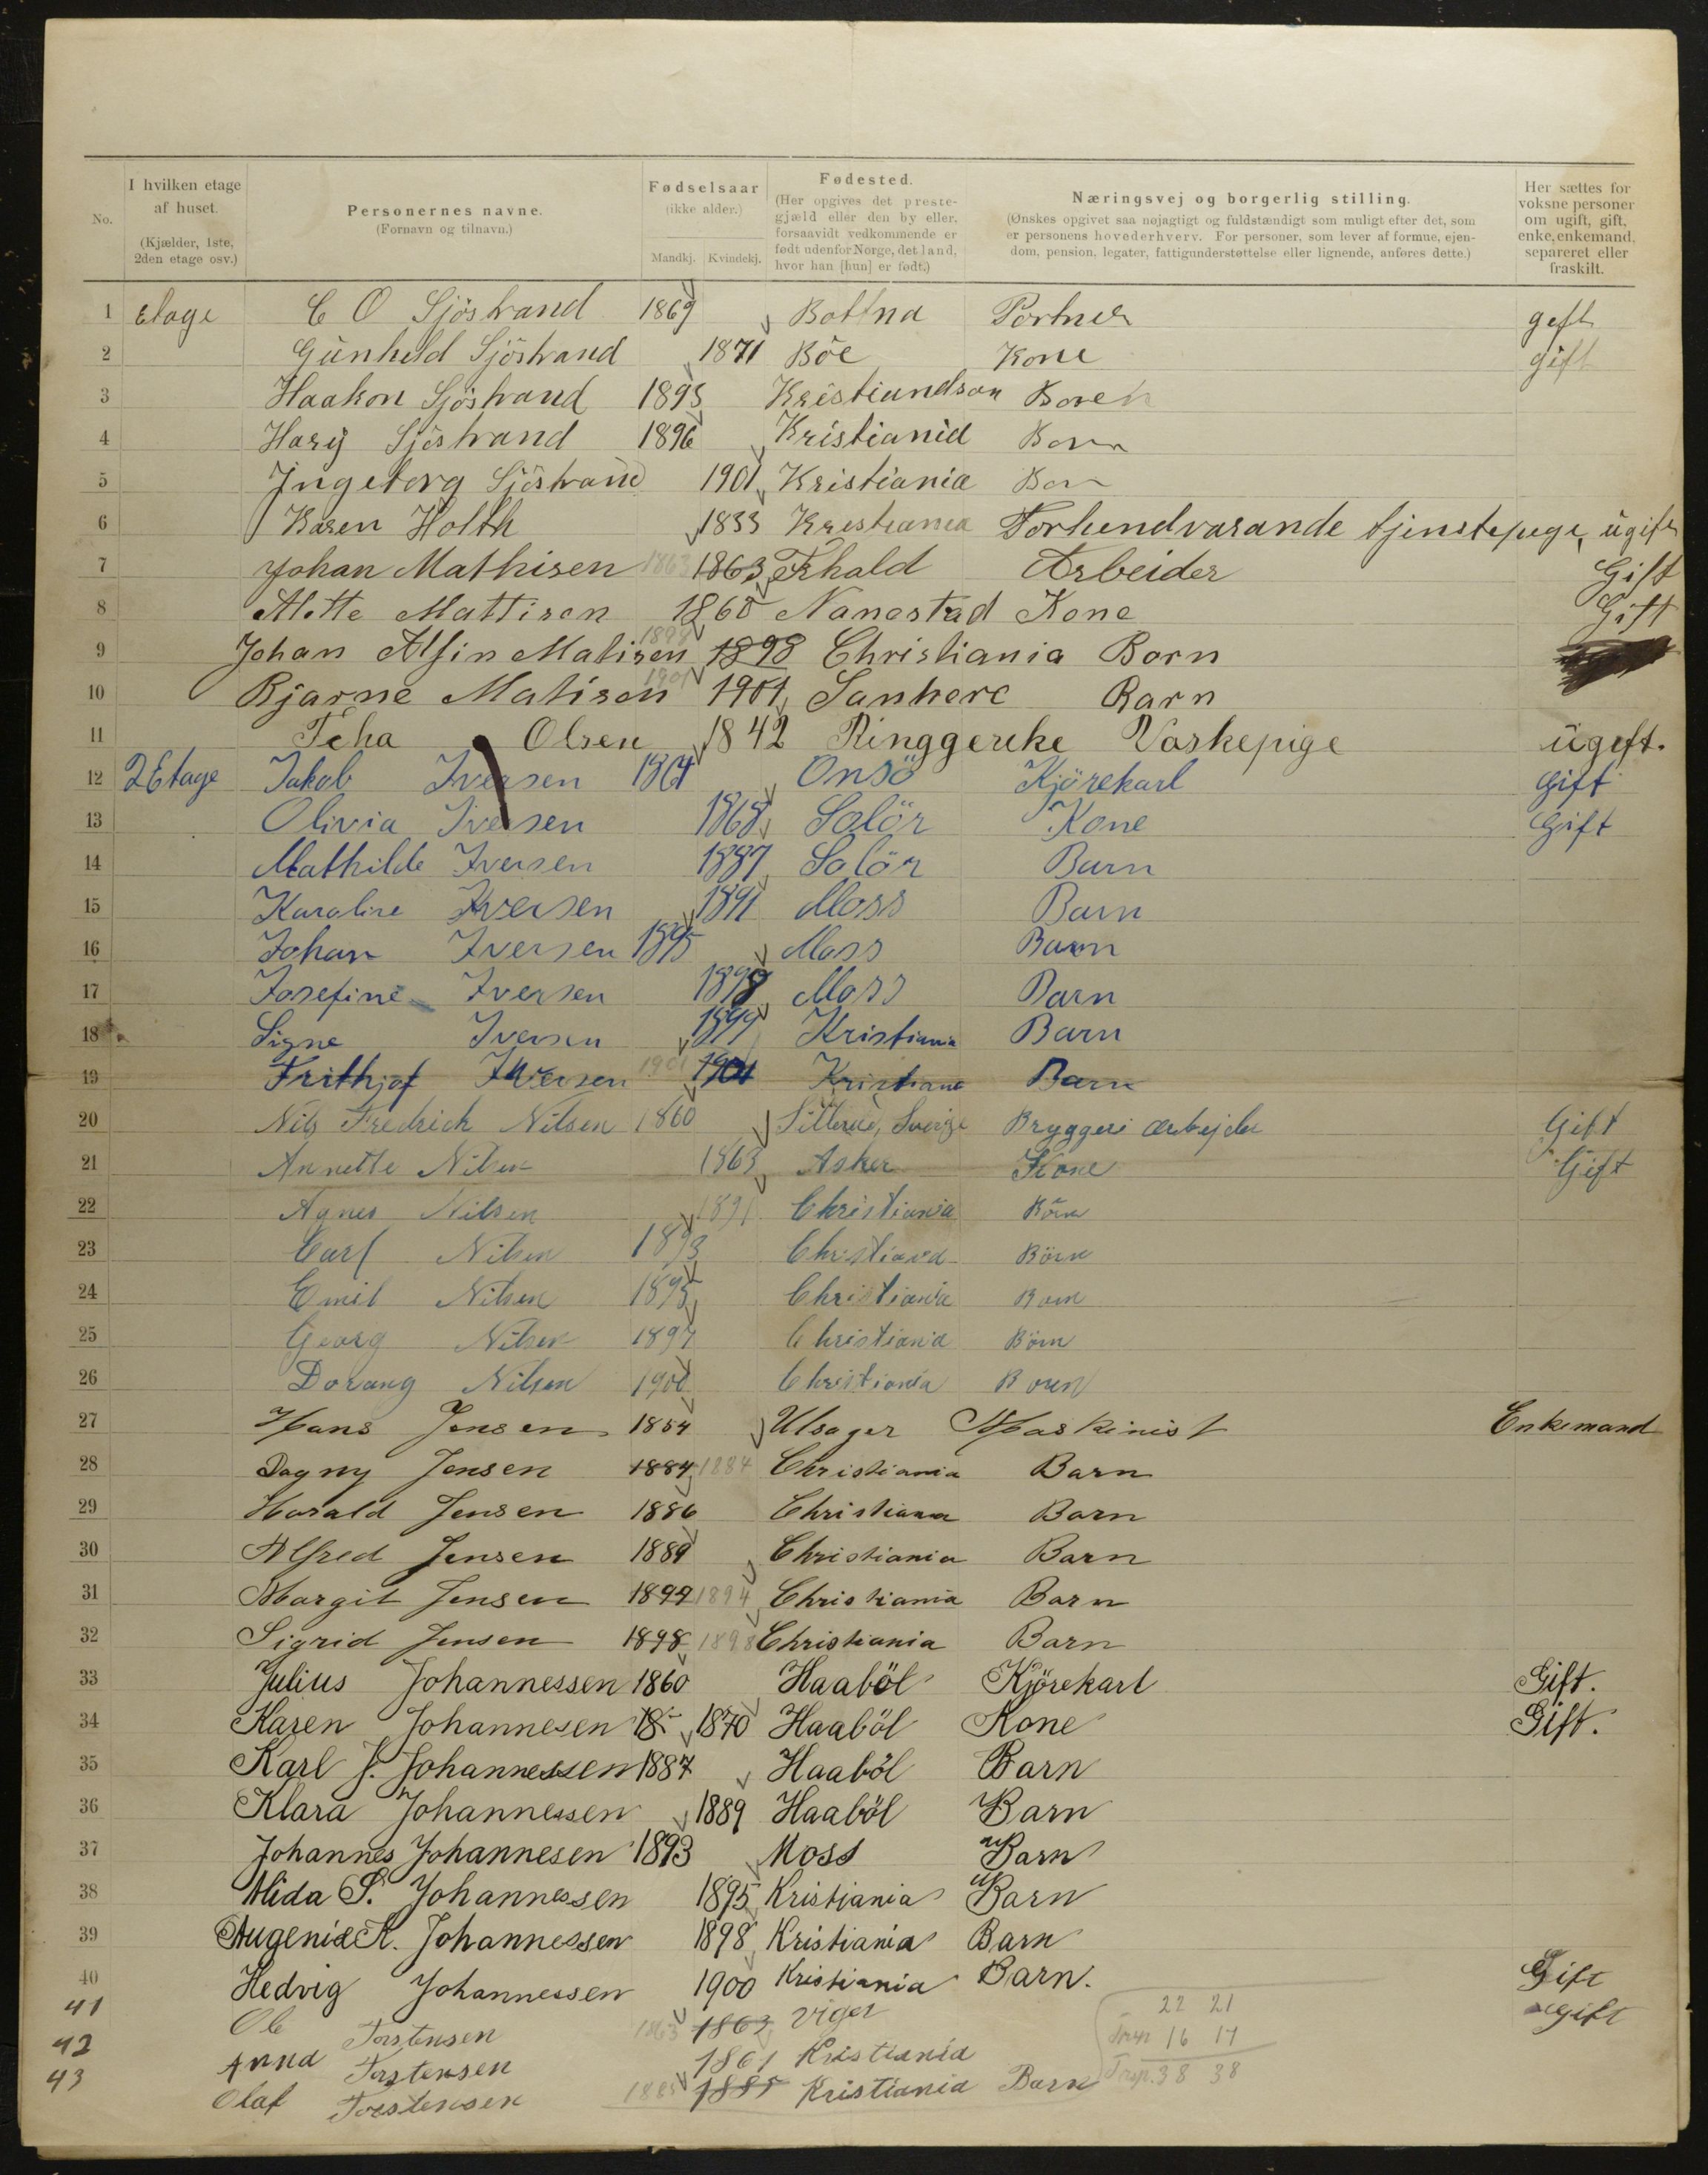 No.
I hvilken etage af huset. (Kjælder, 1ste, 2den etage osv.)
Personernes navne. (Fornavn og tilnavn.)
Fødselsaar (ikke alder.) Mandkj. Kvindekj.
Fødested. (Her opgives det prestegjæld eller den by eller, forsaavidt vedkommende er født udenfor Norge, det land, hvor han [hun] er født.)
Næringsvej og borgerlig stilling. (Ønskes opgivet saa nøjagtigt og fuldstændigt som muligt efter det, som er personens hovederhverv. For personer, som lever af formue, ejendom, pension, legater, fattigunderstøttelse eller lignende, anføres dette.)
Her sættes for voksne personer om ugift, gift, enke, enkemand, separeret eller fraskilt.
1 Etage C O Sjöstrand 1869 Bottna Portner gift
2 Gunhild Sjöstrand 1871 Böe Kone gift
3 Haakon Sjöstrand 1895 Kristiundson Boren
4 Hary Sjöstrand 1896 Kristianid Born
5 Ingeborg Sjöstrand 1901 Kristiania Born
6 Karen Holth 1833 Kristiania Forhendvarande tjenstepege, ugift
7 Johan Mathisen 1863 1863 Arbeider Gift
8 Mette Mattisen 1860 Nanestad Kone Gift
9 Johan Alfin Matisen 1898 1898 Christiania Barn
10 Bjarne Matisen 1901 1901 Sanhere Barn
11 Olsen 1842 Ringgereke Vaskepige ugeft.
12 2 Etage Jakob Iversen 1864 Onsö Kjörekarl Gift
13 Olivia Iversen 1868 Solör Kone Gift
14 Mathilde Iversen 1887 Solör Barn
15 Karoline Iversen 1891 Moss Barn
16 Johan Iversen 1895 Moss Barn
17 Josefine Iversen 1898 Moss Barn
18 Signe Iversen 1899 Kristiania Barn
19 Frithjof Iversen 1901 1901 Kristiana Barn
20 Nils Fredrick Nilsen 1860 Sverige Bryggeri arbejder Gift
21 Annette Nilsen 1863 Asker Kone Gift
22 Agnes Nilsen 1891 Christiania Börn
23 Carl Nilsen 1893 Christiania Börn
24 Emil Nilsen 1895 Christiania Born
25 Georg Nilsen 1897 Christiania Börn
26 Nilsen 1900 Christiania Born
27 Hans Jensen 1854 Ulsager Maskinist Enkemand
28 Dagny Jensen 1884 1884 Christiania Barn
29 Harald Jensen 1886 Christiana Barn
30 Alfred Jensen 1889 Christiania Barn
31 Margit Jensen 1894 1894 Christiania Barn
32 Sigrid Jensen 1898 1898 Christiania Barn
33 Julius Johannessen 1860 Haaböl Kjörekarl Gift.
34 Karen Johannesen 18 1870 Haaböl Kone Gift.
35 Karl J. Johannessen 1887 Haaböl Barn
36 Klara Johannessen 1889 Haaböl Barn
37 Johannes Johannesen 1893 Moss Barn
38 Alida S. Johannessen 1895 Kristiania Barn
39 Augenie K. Johannessen 1898 Kristiania Barn
40 Hedvig Johannessen 1900 Kristiania Barn. Gift
41 Ole Torstensen 1863 1863 Viger gift
42 Anna Torstensen 1861 Kristiania
43 Olaf Torstensen 1885 1885 Kristiania Barn
22 21
16 17
38 38